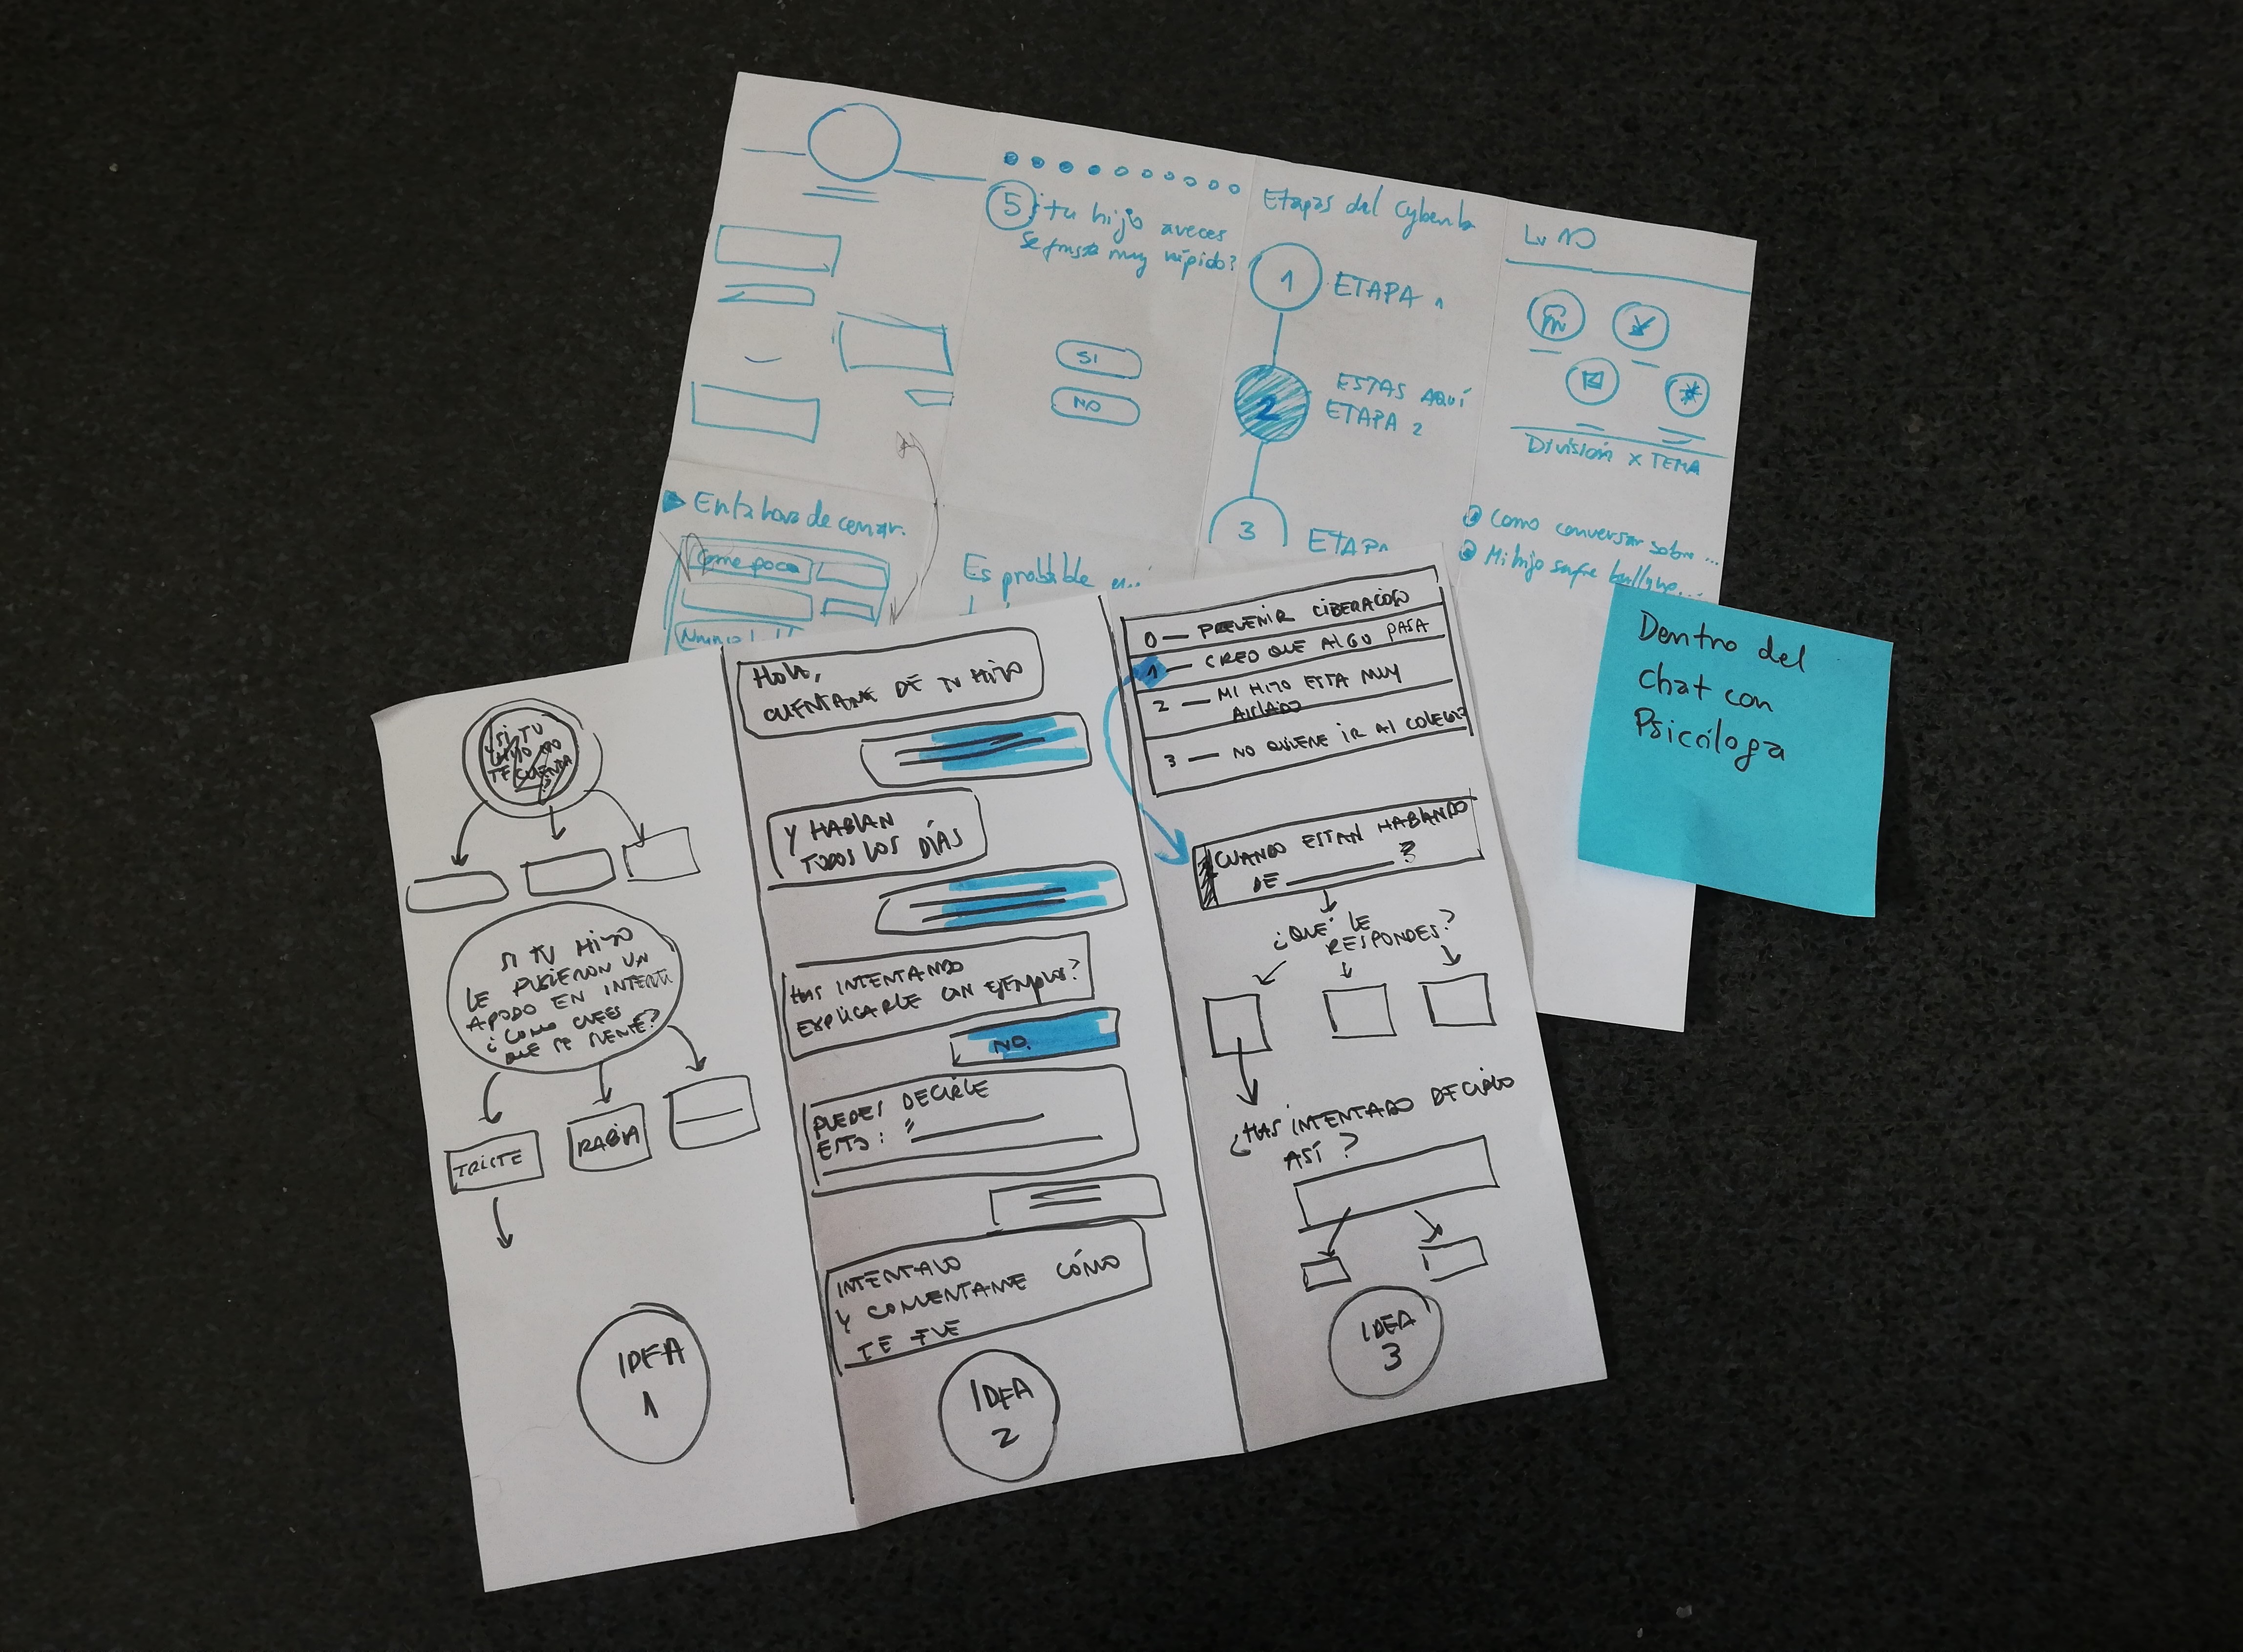 5
¿tu hijo aveces
se frustra muy rápido?
SI
NO
Etapas del Cyberb
1 ETAPA 1
2 ESTAS AQUÍ
ETAPA 2
3 ETAPA
División x TEMA
Como conversar sobre ...
Mi hijo sufre bullying...
En la hora de cenar.
Come poco
Es probable
Dentro del
Chat con
Psicóloga
SI TU
HIJO NO
TE CUENTA
SI TU HIJO
LE PUSIERON UN
APODO EN INTERNET
¿COMO CREES
QUE SE SIENTE?
TRISTE
RABIA
IDEA
1
HOLA,
CUENTAME DE TU HIJO
Y HABLAN
TODOS LOS DÍAS
HAS INTENTANDO
EXPLICARLE CON EJEMPLOS?
NO.
PUEDES DECIRLE
ESTO: "
INTENTALO
Y COMENTAME CÓMO
TE FUE
IDEA
2
0 — PREVENIR CIBERACOSO
1 — CREO QUE ALGO PASA
2 — MI HIJO ESTA MUY
AISLADO
3 — NO QUIERE IR AL COLEGIO
CUANDO ESTAN HABLANDO
DE ________ ?
¿QUÉ LE
RESPONDES?
¿HAS INTENTADO DECIRLO
ASÍ ?
IDEA
3